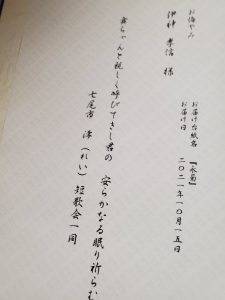 お悔やみ
沖村 孝信 様
お届け台紙名 『永菊』
お届け日 二〇二一年一〇月一五日
孝ちゃんと親しく呼びてきし君の 安らかなる眠り祈らむ
七尾市 澪（れい）短歌会一同